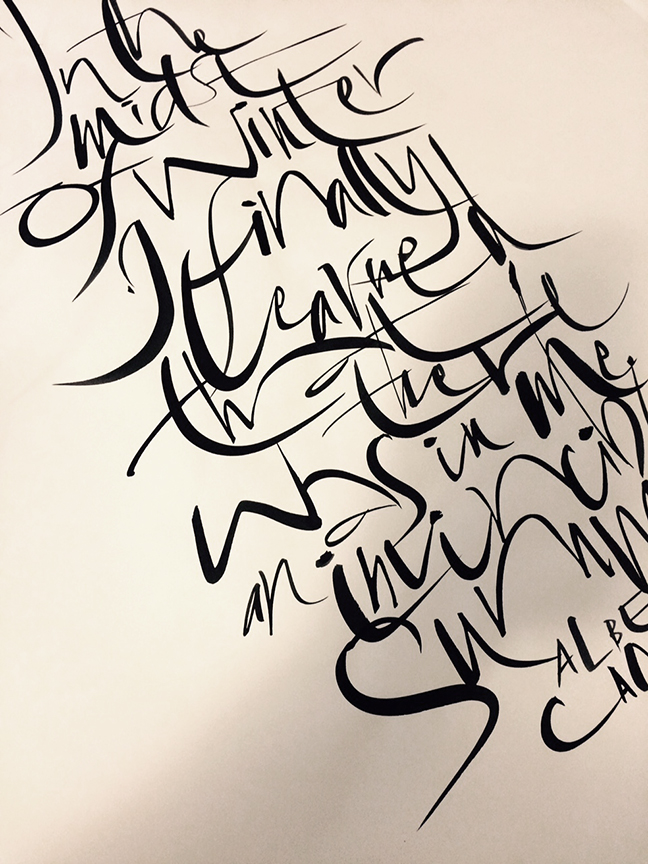 In the
midst
of Winter
I finally
learned
that there
was in me,
an invincin
Summ
ALBE
CAM